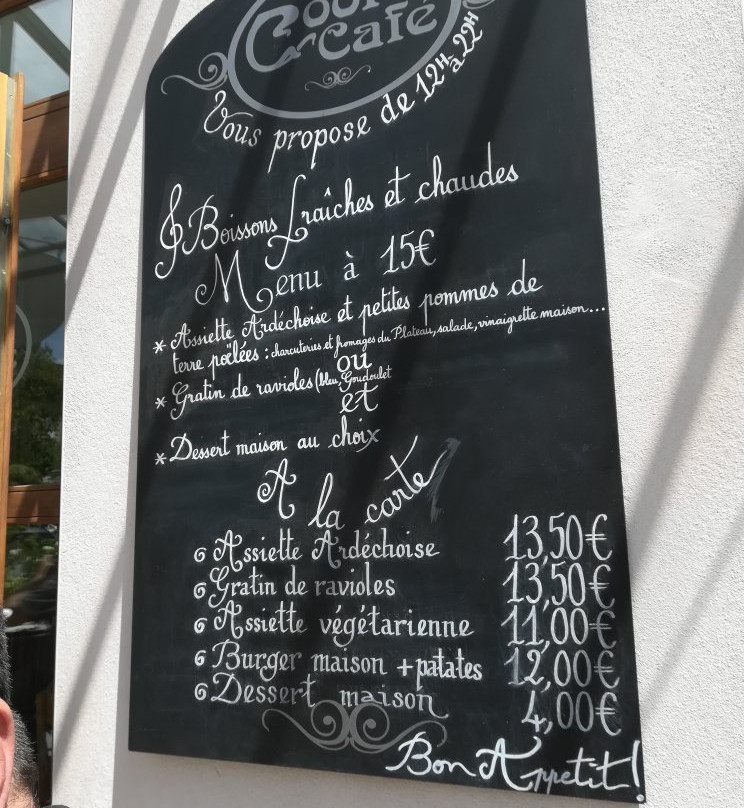 Café
Vous propose de 12H à 22H
Boissons fraîches et chaudes
Menu à 15€
* Assiette Ardéchoise et petites pommes de
terre poëlées : charcuteries et fromages du Plateau, salade, vinaigrette maison...
ou
* Gratin de ravioles (bleu, Goudoulet
et
* Dessert maison au choix
A la carte
Assiette Ardéchoise 13,50€
Gratin de ravioles 13,50€
Assiette végétarienne 11,00€
Burger maison + patates 12,00€
Dessert maison 4,00€
Bon Appetit!